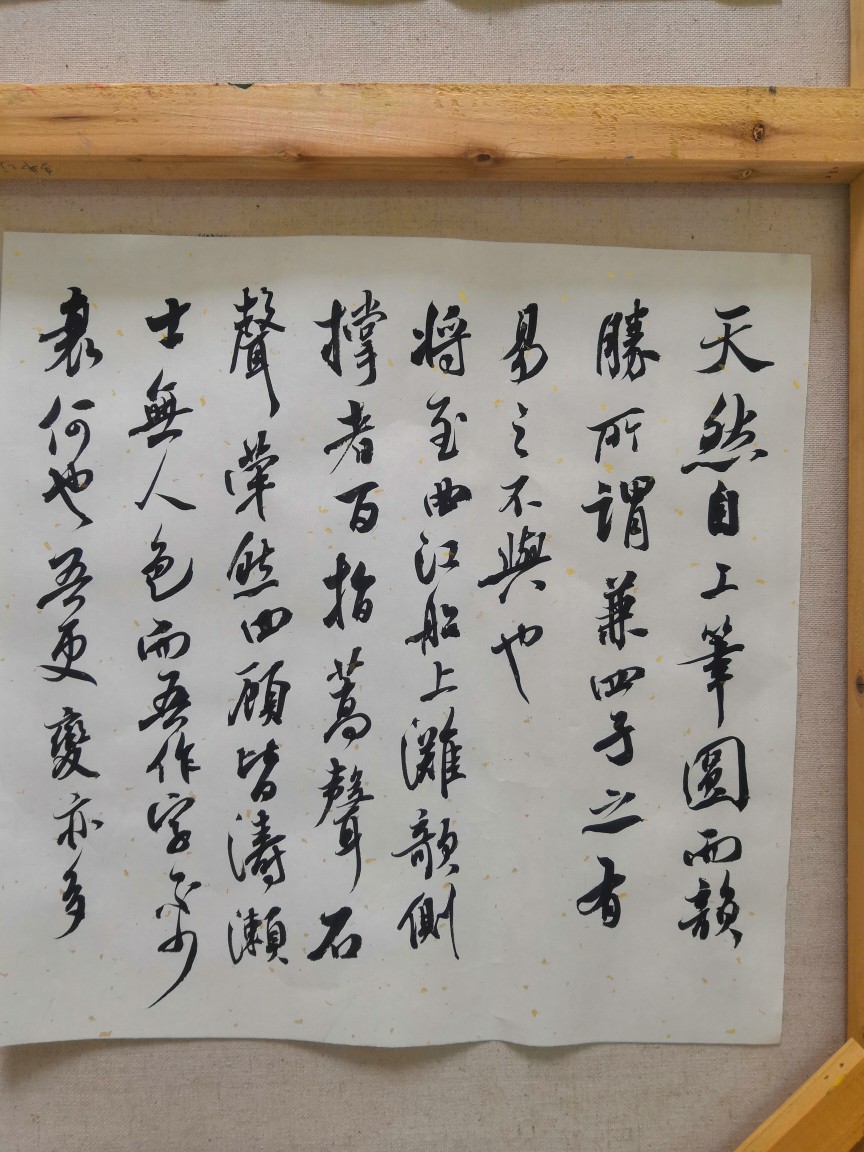 天然自工筆圓而韻
勝所謂兼四子之有
易之不與也
將至曲江船上灘欹側
撐者百指蒿聲石
聲犖然四顧皆濤瀨
士無人色而吾作字不少
衰何也吾更變亦多